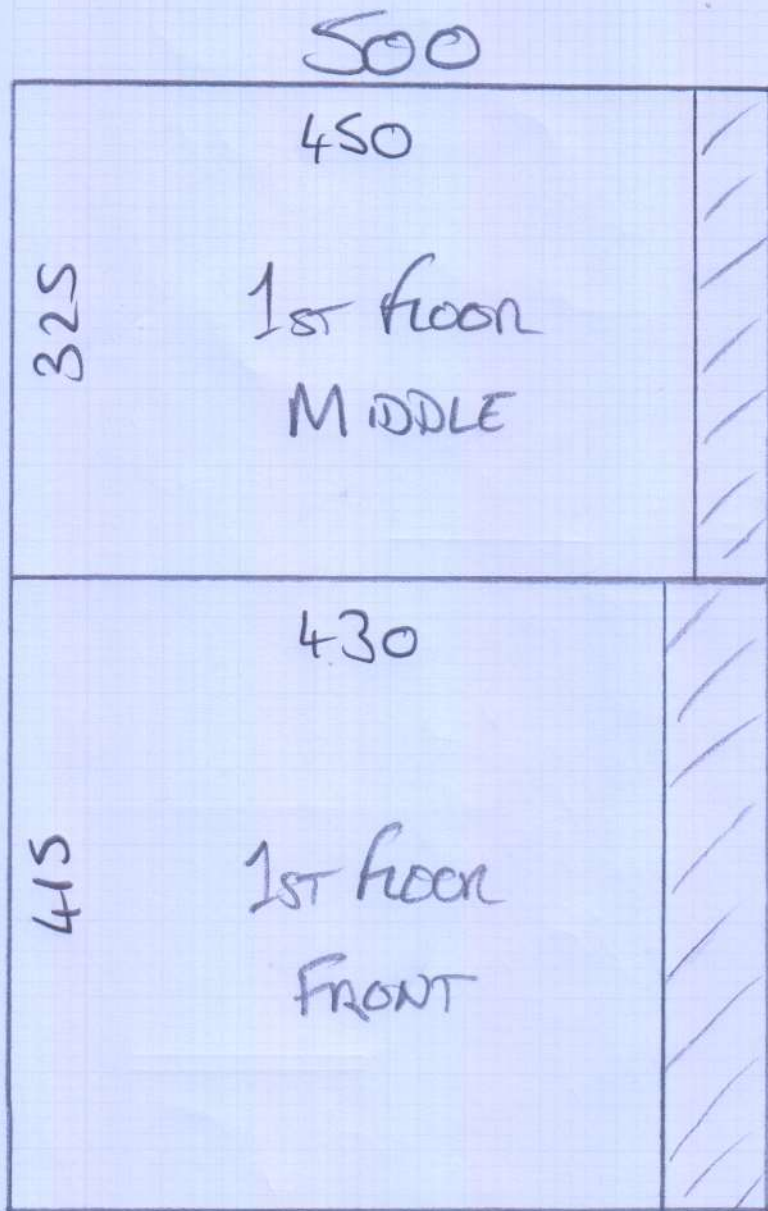 500
450
325
1ST FLOOR
MIDDLE
430
415
1ST FLOOR
FRONT